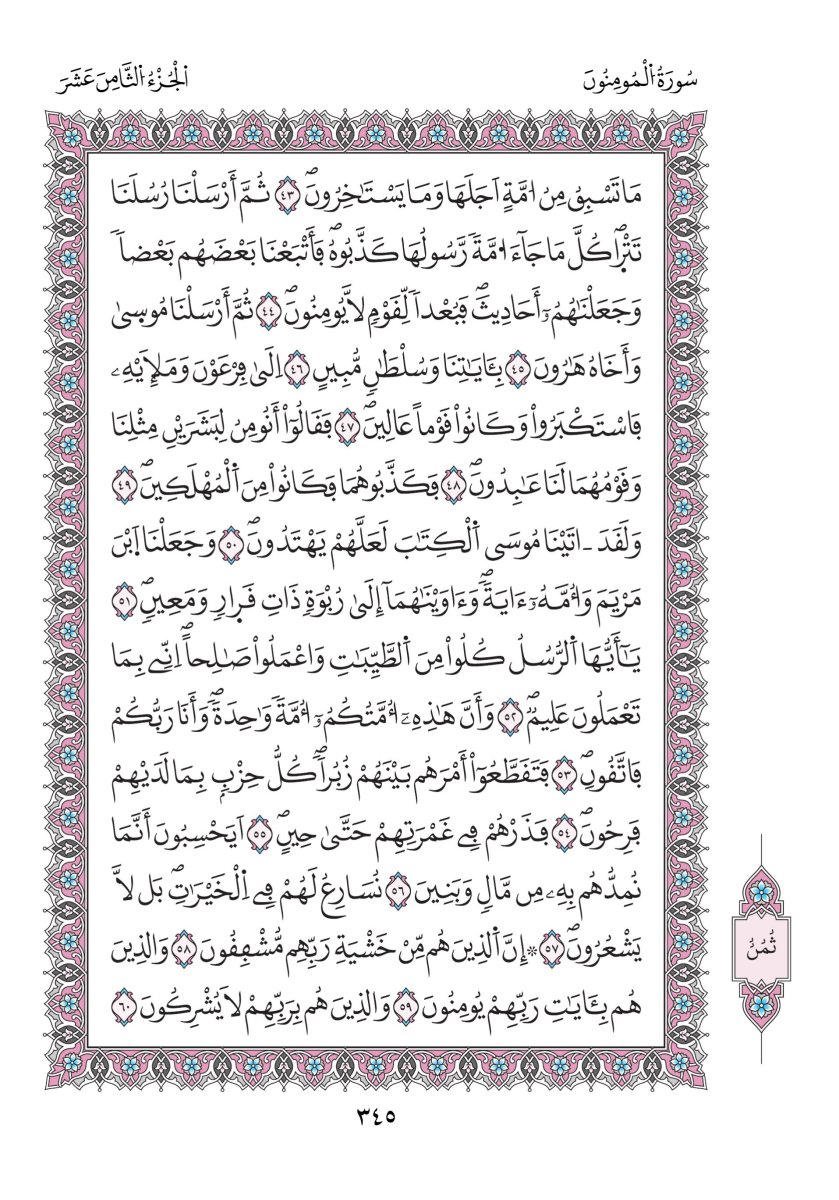 سُورَةُ الْمُومِنُونَ
الْجُزْءُ الثَّامِنَ عَشَرَ
مَا تَسْبِقُ مِنُ امَّةٍ اَجَلَهَا وَمَا يَسْتَٰخِرُونَۖ ٤٣ ثُمَّ أَرْسَلْنَا رُسُلَنَا
تَتْر۪اۖ كُلَّ مَا جَآءَ امَّةٗ رَّسُولُهَا كَذَّبُوهُۖ فَأَتْبَعْنَا بَعْضَهُم بَعْضاٗ
وَجَعَلْنَٰهُمُۥٓ أَحَادِيثَۖ فَبُعْداٗ لِّقَوْمٖ لَّا يُومِنُونَۖ ٤٤ ثُمَّ أَرْسَلْنَا مُوس۪ىٰ
وَأَخَاهُ هَٰرُونَ ٤٥ بِـَٔايَٰتِنَا وَسُلْطَٰنٖ مُّبِينٍ ٤٦ اِلَىٰ فِرْعَوْنَ وَمَلَإِيْهِۦ
فَاسْتَكْبَرُواْ وَكَانُواْ قَوْماً عَالِينَۖ ٤٧ فَقَالُوٓاْ أَنُومِنُ لِبَشَرَيْنِ مِثْلِنَا
وَقَوْمُهُمَا لَنَا عَٰبِدُونَۖ ٤٨ فَكَذَّبُوهُمَا فَكَانُواْ مِنَ اَلْمُهْلَكِينَۖ ٤٩
وَلَقَدَ ـ اتَيْنَا مُوسَى اَلْكِتَٰبَ لَعَلَّهُمْ يَهْتَدُونَۖ ٥٠ وَجَعَلْنَا اَبْنَ
مَرْيَمَ وَأُمَّهُۥٓ ءَايَةٗۖ وَءَاوَيْنَٰهُمَآ إِلَىٰ رُبْوَةٖ ذَاتِ قَر۪ارٖ وَمَعِينٖۖ ٥١
يَٰٓأَيُّهَا اَلرُّسُلُ كُلُواْ مِنَ اَلطَّيِّبَٰتِ وَاعْمَلُواْ صَٰلِحاًۖ اِنِّے بِمَا
تَعْمَلُونَ عَلِيمٞۖ ٥٢ وَأَنَّ هَٰذِهِۦٓ أُمَّتُكُمُۥٓ أُمَّةٗ وَٰحِدَةٗۖ وَأَنَا رَبُّكُمْ
فَاتَّقُونِۖ ٥٣ فَتَقَطَّعُوٓاْ أَمْرَهُم بَيْنَهُمْ زُبُراٗۖ كُلُّ حِزْبِۢ بِمَا لَدَيْهِمْ
فَرِحُونَۖ ٥٤ فَذَرْهُمْ فِے غَمْرَتِهِمْ حَتَّىٰ حِينٍۖ ٥٥ اَيَحْسِبُونَ أَنَّمَا
نُمِدُّهُم بِهِۦ مِن مَّالٖ وَبَنِينَ ٥٦ نُسَارِعُ لَهُمْ فِے اِلْخَيْرَٰتِۖ بَل لَّا
يَشْعُرُونَۖ ٥٧ ۞ إِنَّ اَلذِينَ هُم مِّنْ خَشْيَةِ رَبِّهِم مُّشْفِقُونَ ٥٨ وَالذِينَ
هُم بِـَٔايَٰتِ رَبِّهِمْ يُومِنُونَ ٥٩ وَالذِينَ هُم بِرَبِّهِمْ لَا يُشْرِكُونَ ٦٠
ثُمُنُ
٣٤٥